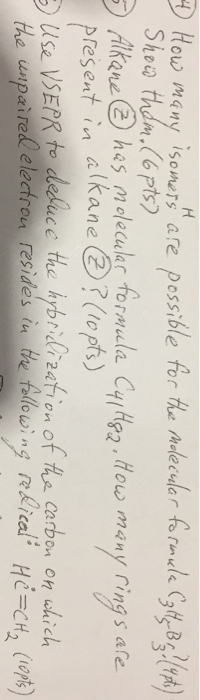 4) How many isomers are possible for the molecular formula C3H5Br3? (4pts)
H
Show them. (6pts)
5) Alkane Z has molecular formula C41H82. How many rings are
present in alkane Z? (10pts)
) Use VSEPR to deduce the hybridization of the carbon on which
the unpaired electron resides in the following radical: HC=CH2 (10pts)